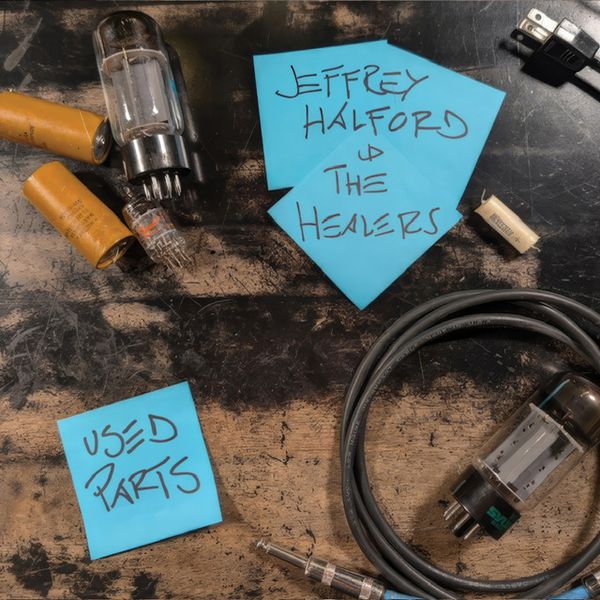 JEFFREY
HALFORD
&
THE
HEALERS
USED
PARTS